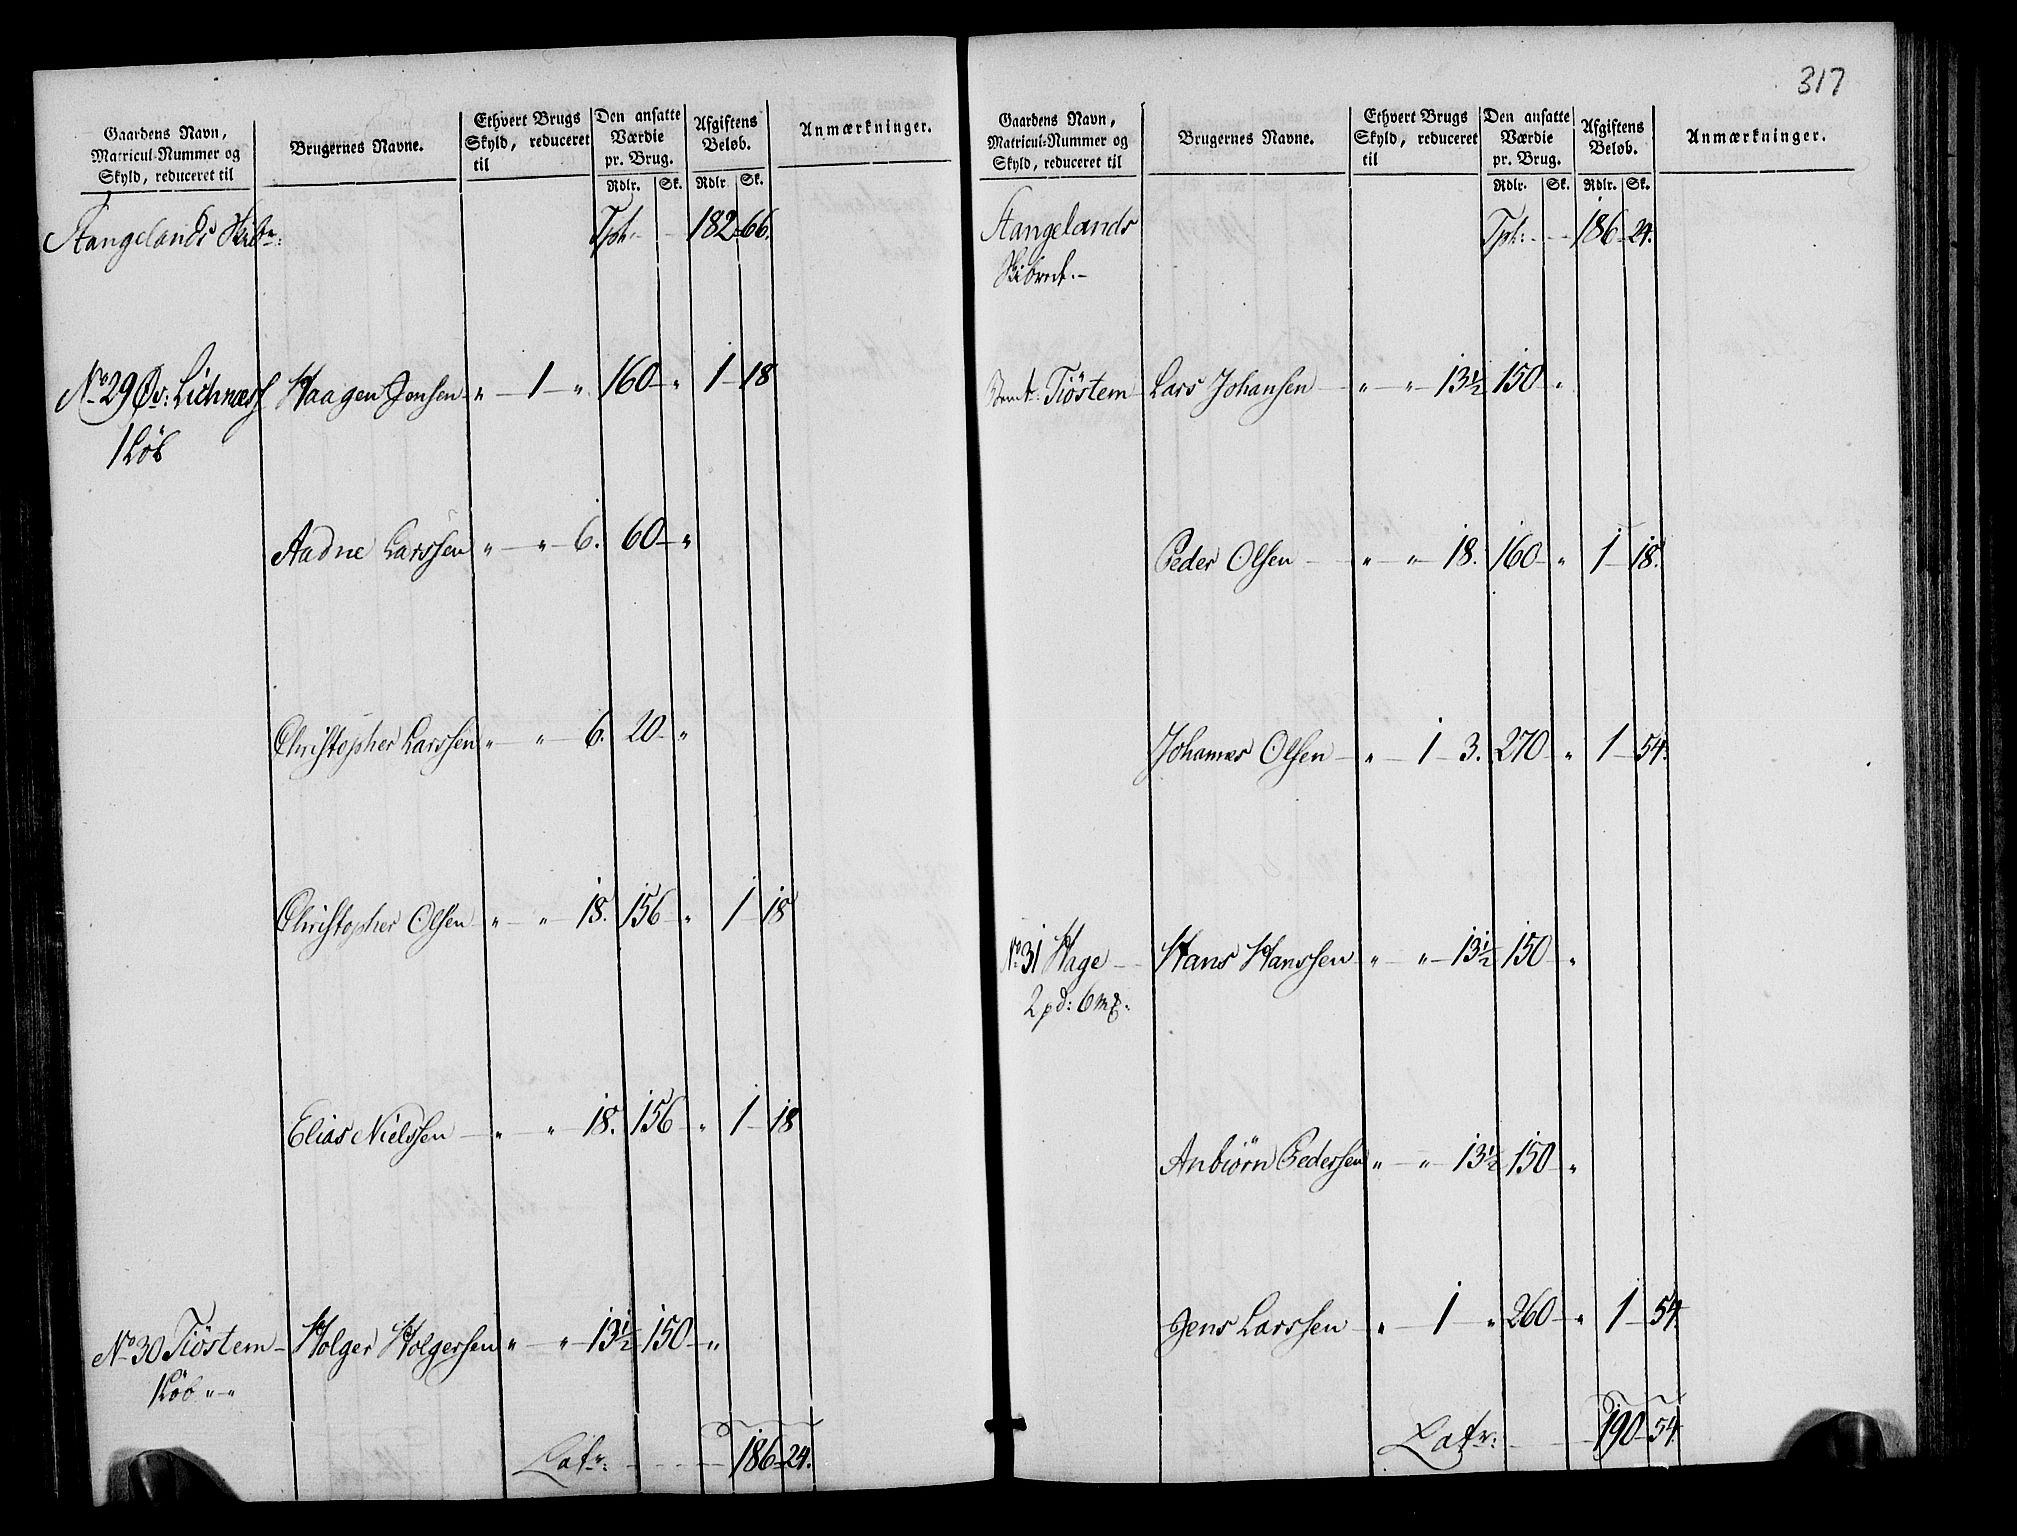 Gaardens Navn, Matricul-Nummer og Skyld, reduceret til | Brugernes Navne. | Ethvert Brugs Skyld, reduceret til | Den ansatte Værdie pr. Brug. Rdlr. Sk. | Afgiftens Beløb. Rdlr. Sk. | Anmærkninger.
Stangelands Skibr: Tpt: 182 66.
No 29 Øv: Lichness Haagen Jensen " 1 " 160 " 1 18
1 Løb
Aadne Larssen " " 6. 60 "
Christopher Larssen " " 6. 20 "
Christopher Olsen " " 18. 156 " 1 18
Elias Nielssen " " 18. 156 " 1 18
No 30 Tiöstem Holger Holgersen " " 13½ 150 "
1 Løb " "
Latr: 186 24.
317
Gaardens Navn, Matricul-Nummer og Skyld, reduceret til | Brugernes Navne. | Ethvert Brugs Skyld, reduceret til | Den ansatte Værdie pr. Brug. Rdlr. Sk. | Afgiftens Beløb. Rdlr. Sk. | Anmærkninger.
Stangelands Tpt: 186 24.
Skibret.
Tiöstem Lars Johansen " " 13½ 150 "
Peder Olsen " " 18. 160 " 1 18.
Johannes Olsen " 1 3. 270 " 1 54.
No 31 Hage Hans Hanssen " " 13½ 150 "
2 pd: 6 mk.
Anbiörn Pedersen " " 13½ 150 "
Jens Larssen " 1 " 260 " 1 54.
Latr: 190 54.